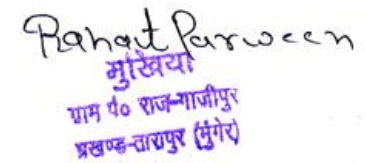 Rahat Parween
मुखिया
ग्राम पं० राज-गाजीपुर
प्रखण्ड-तारापुर (मुंगेर)